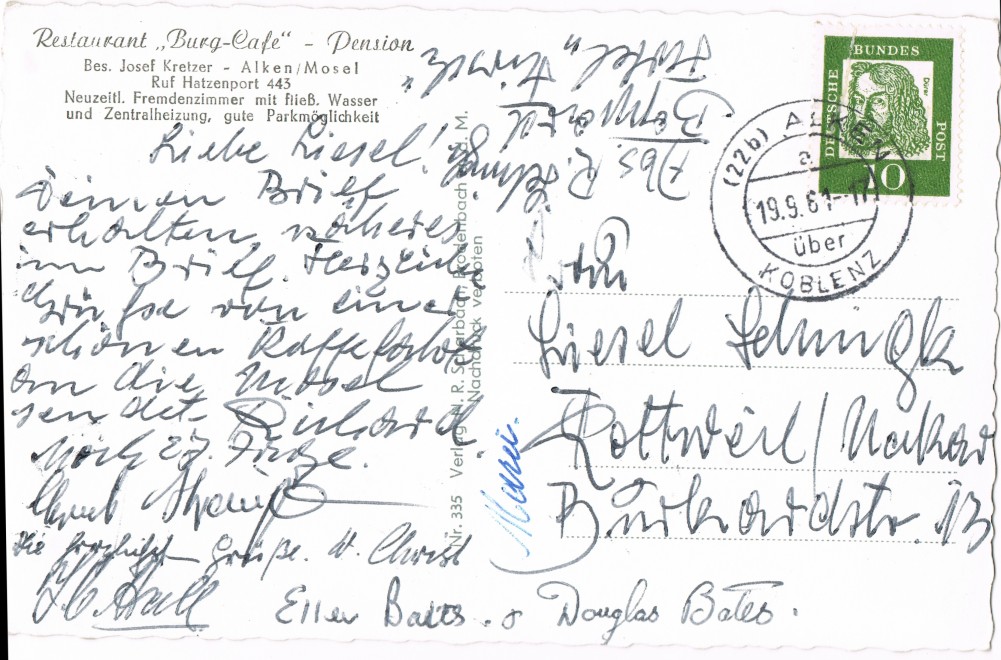 Restaurant „Burg-Cafe" - Pension
Bes. Josef Kretzer - Alken/Mosel
Ruf Hatzenport 443
Neuzeitl. Fremdenzimmer mit fließ. Wasser
und Zentralheizung, gute Parkmöglichkeit
Liebe Liesel!
Deinen Brief
erhalten, näheres
im Brief. Herzliche
Grüße von einer
schönen Kaffefahrt
an die Mosel
sendet Richard
Noch 27. Tage.
die herzlichst Grüße. W. Christ
Ellen Bates. & Douglas Bates.
Abs. R.
Boppard
Hotel
Nr. 335 Verlag N. R. Scharbach, Brodenbach d. M.
Nachdruck verboten
Maria.
DEUTSCHE BUNDES POST
Dürer
10
(22b) ALKEN
a
19.9.61-17
über
KOBLENZ
Frau
Liesel Schüngk
Rottweil/Neckar
Burkardstr. 13